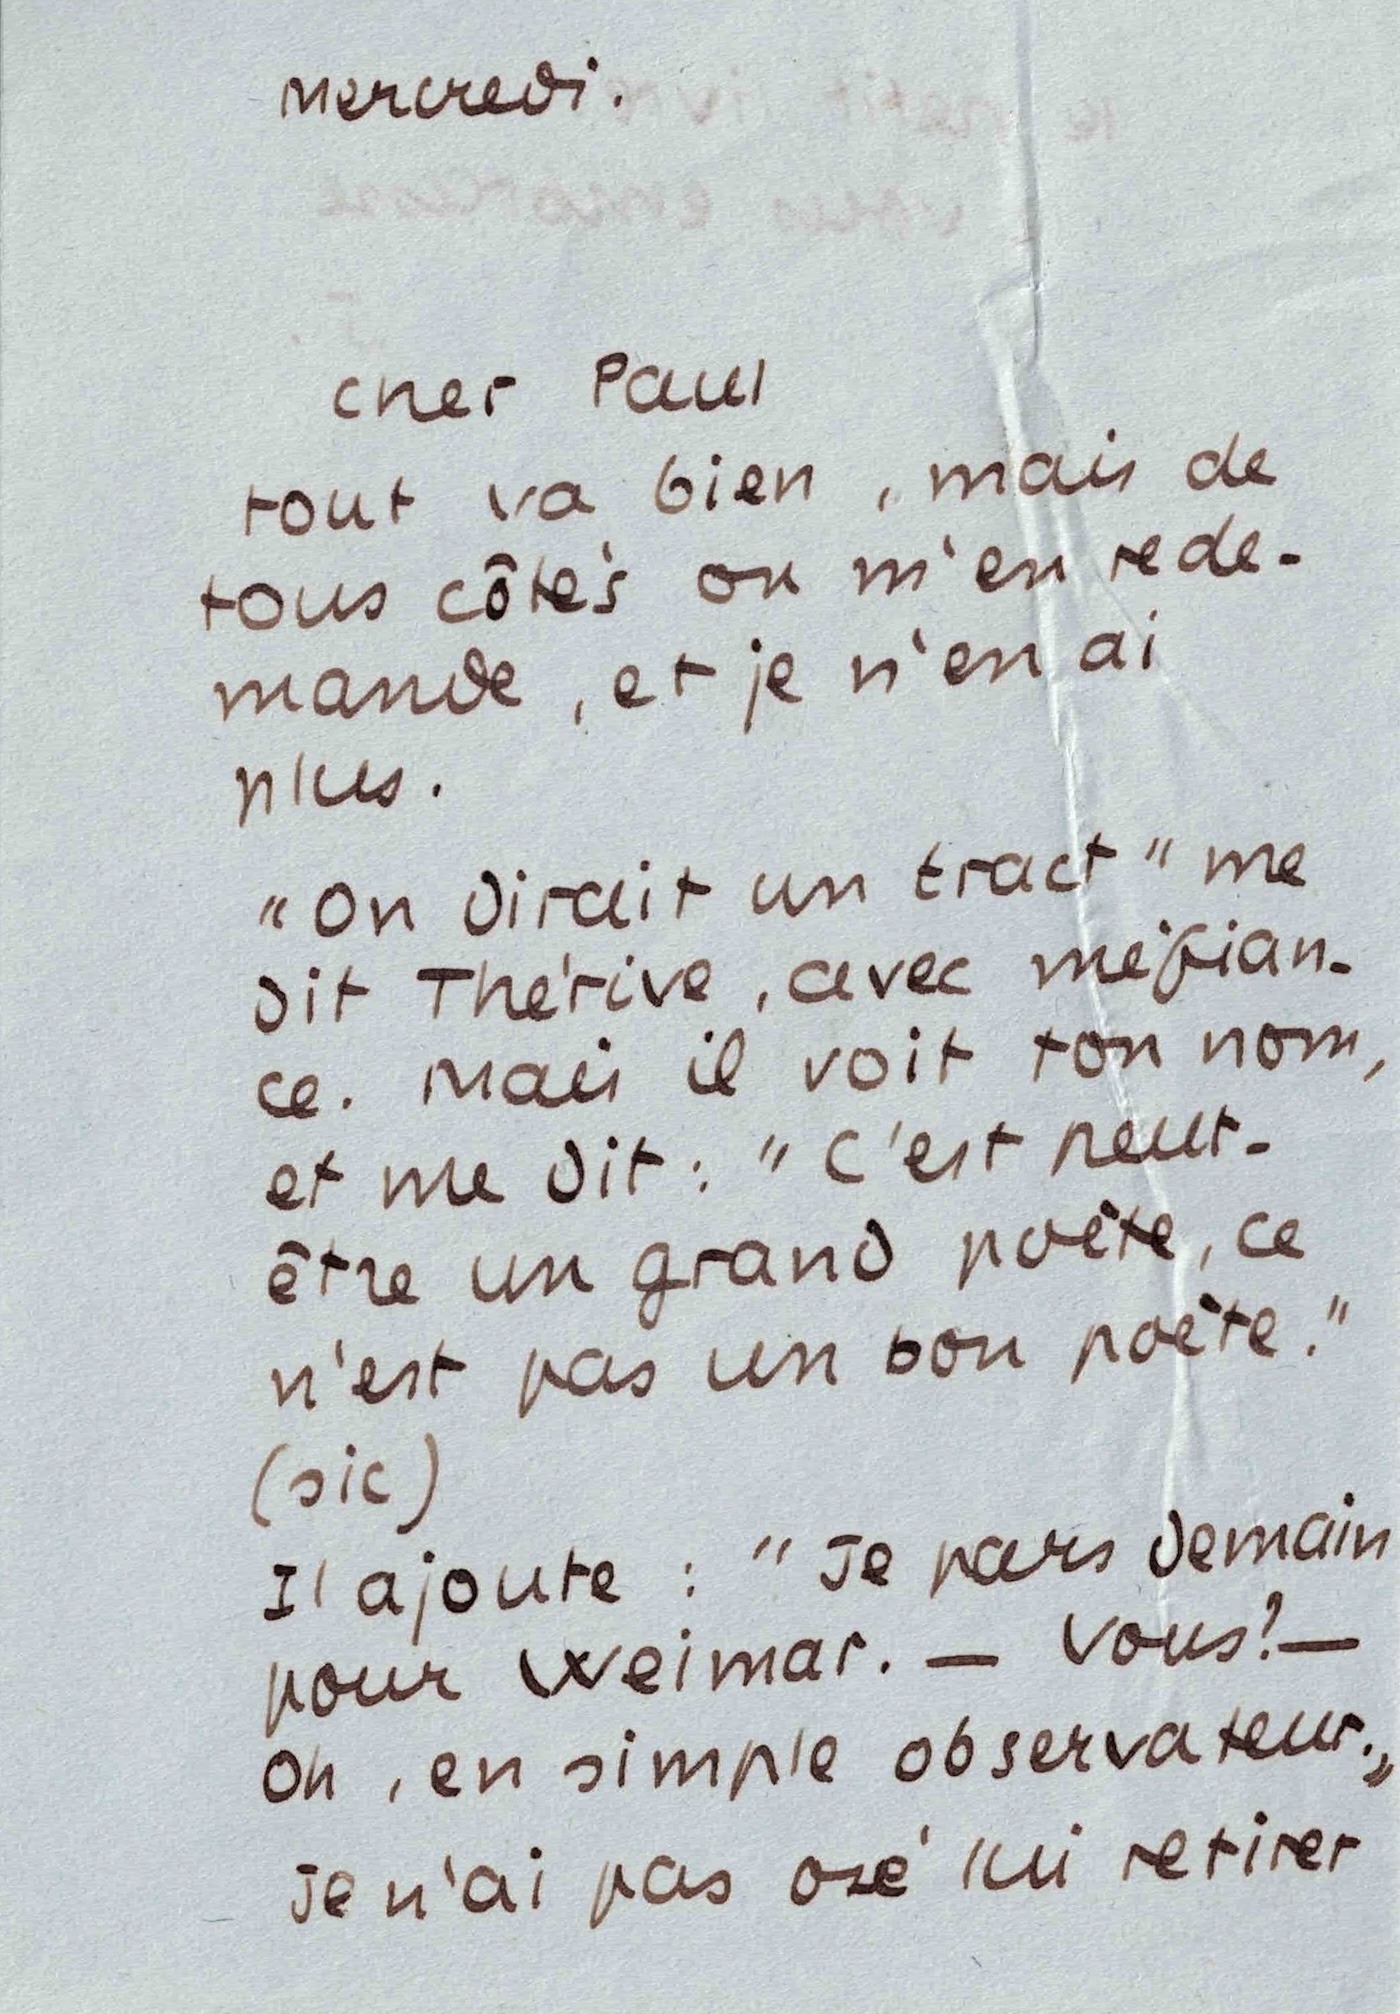 Mercredi.
cher Paul
tout va bien, mais de
tous côtés on m'en rede-
mande, et je n'en ai
plus.
"On dirait un tract" me
dit Thérive, avec méfian-
ce. Mais il voit ton nom,
et me dit : "C'est peut-
être un grand poète, ce
n'est pas un bon poète."
(sic)
Il ajoute : "Je pars demain
pour Weimar. — Vous? —
Oh, en simple observateur."
Je n'ai pas osé lui retirer